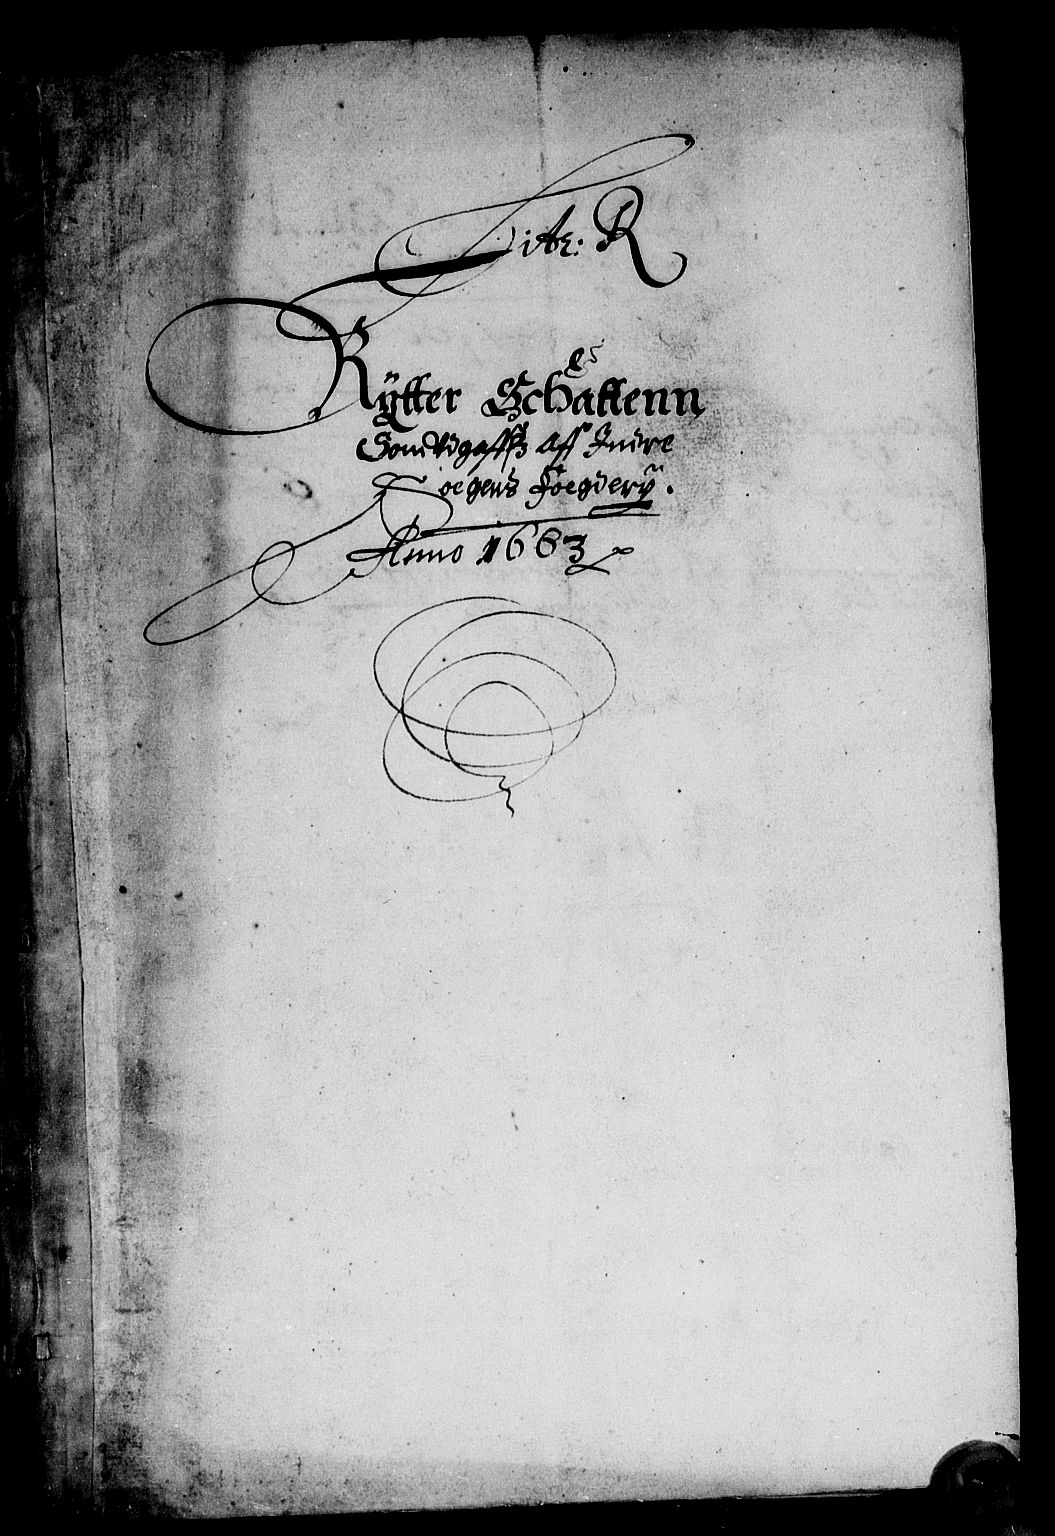 Liter: R
Rÿtter Schattenn
Som Udgaffß aff Indre
Sogens Foegderÿ.
Anno 1663